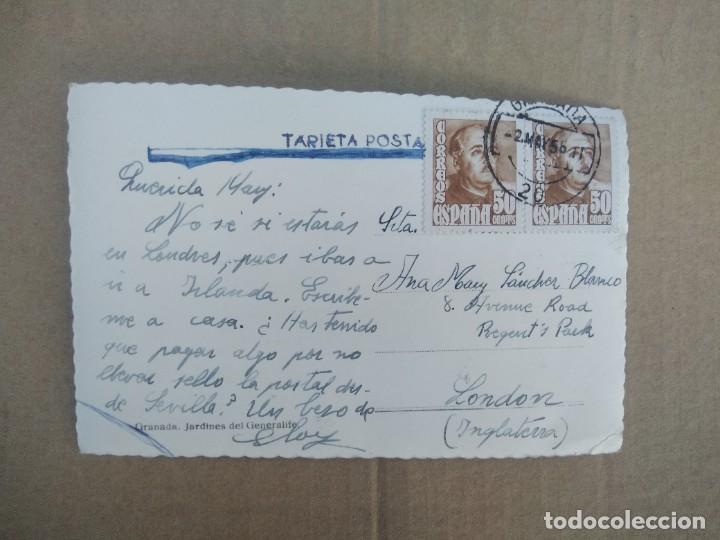 TARJETA POSTA
CORREOS
ESPAÑA 50
CENTMS
ESPAÑA 50
CENTMS
GRANADA
-2.MAY56
Querida Mary:
No sé si estarás
en Londres, pues ibas a
ir a Irlanda. Escribe-
me a casa. ¿Has tenido
que pagar algo por no
llevar sello la postal des-
de Sevilla? Un beso de
Eloy
Srta.
Ana Mary Sánchez Blanco
8. Avenue Road
Regent's Park
London
(Inglaterra)
Granada. Jardines del Generalife
todocoleccion.net